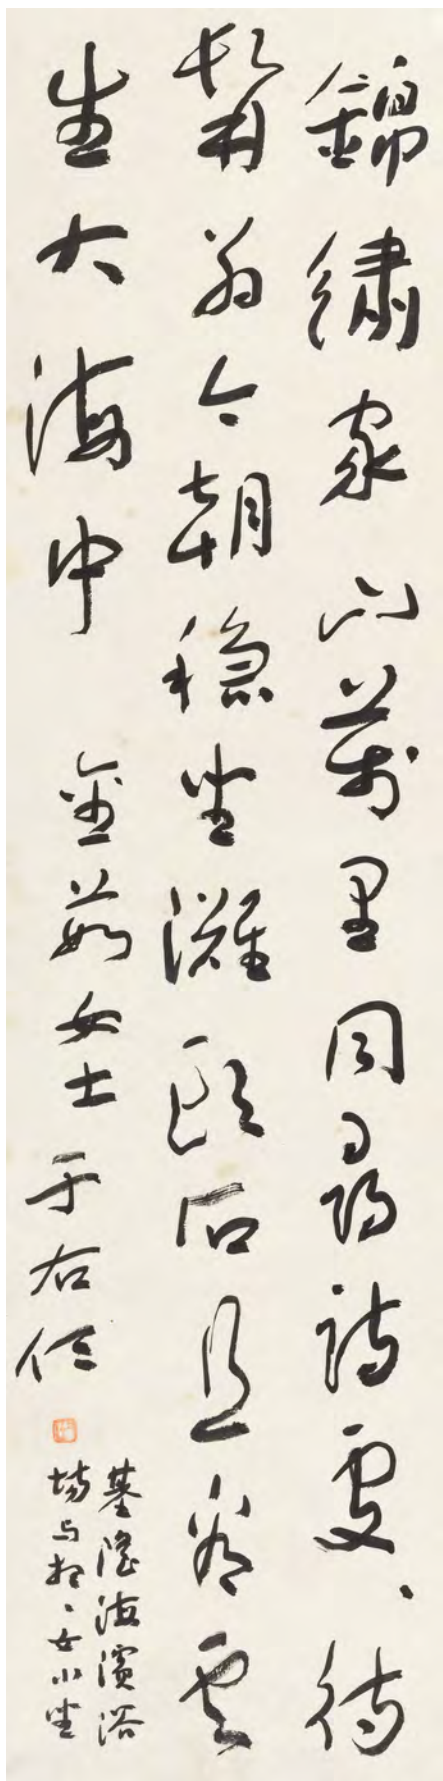 錦繡家山萬里同尋詩處、待
髯翁今朝穩坐灘頭石且看雲
生大海中 女士 于右任
基隆海濱浴
場与想、女小坐